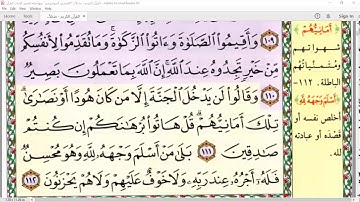 ١٠٩ وَأَقِيمُوا۟ ٱلصَّلَوٰةَ وَءَاتُوا۟ ٱلزَّكَوٰةَ ۚ وَمَا تُقَدِّمُوا۟ لِأَنفُسِكُم
مِّنْ خَيْرٍ تَجِدُوهُ عِندَ ٱللَّهِ ۗ إِنَّ ٱللَّهَ بِمَا تَعْمَلُونَ بَصِيرٌ
١١٠ وَقَالُوا۟ لَن يَدْخُلَ ٱلْجَنَّةَ إِلَّا مَن كَانَ هُودًا أَوْ نَصَٰرَىٰ ۗ
تِلْكَ أَمَانِيُّهُمْ ۗ قُلْ هَاتُوا۟ بُرْهَٰنَكُمْ إِن كُنتُمْ
صَٰدِقِينَ ١١١ بَلَىٰ مَنْ أَسْلَمَ وَجْهَهُۥ لِلَّهِ وَهُوَ مُحْسِنٌ
فَلَهُۥٓ أَجْرُهُۥ عِندَ رَبِّهِۦ وَلَا خَوْفٌ عَلَيْهِمْ وَلَا هُمْ يَحْزَنُونَ ١١٢
أَمَانِيُّهُمْ
شهواتهم
ومتمنياتهم
الباطلة. ١١٢-
أَسْلَمَ وَجْهَهُ لِلَّهِ
أخلص نفسه أو
قصده أو عبادته
لله.